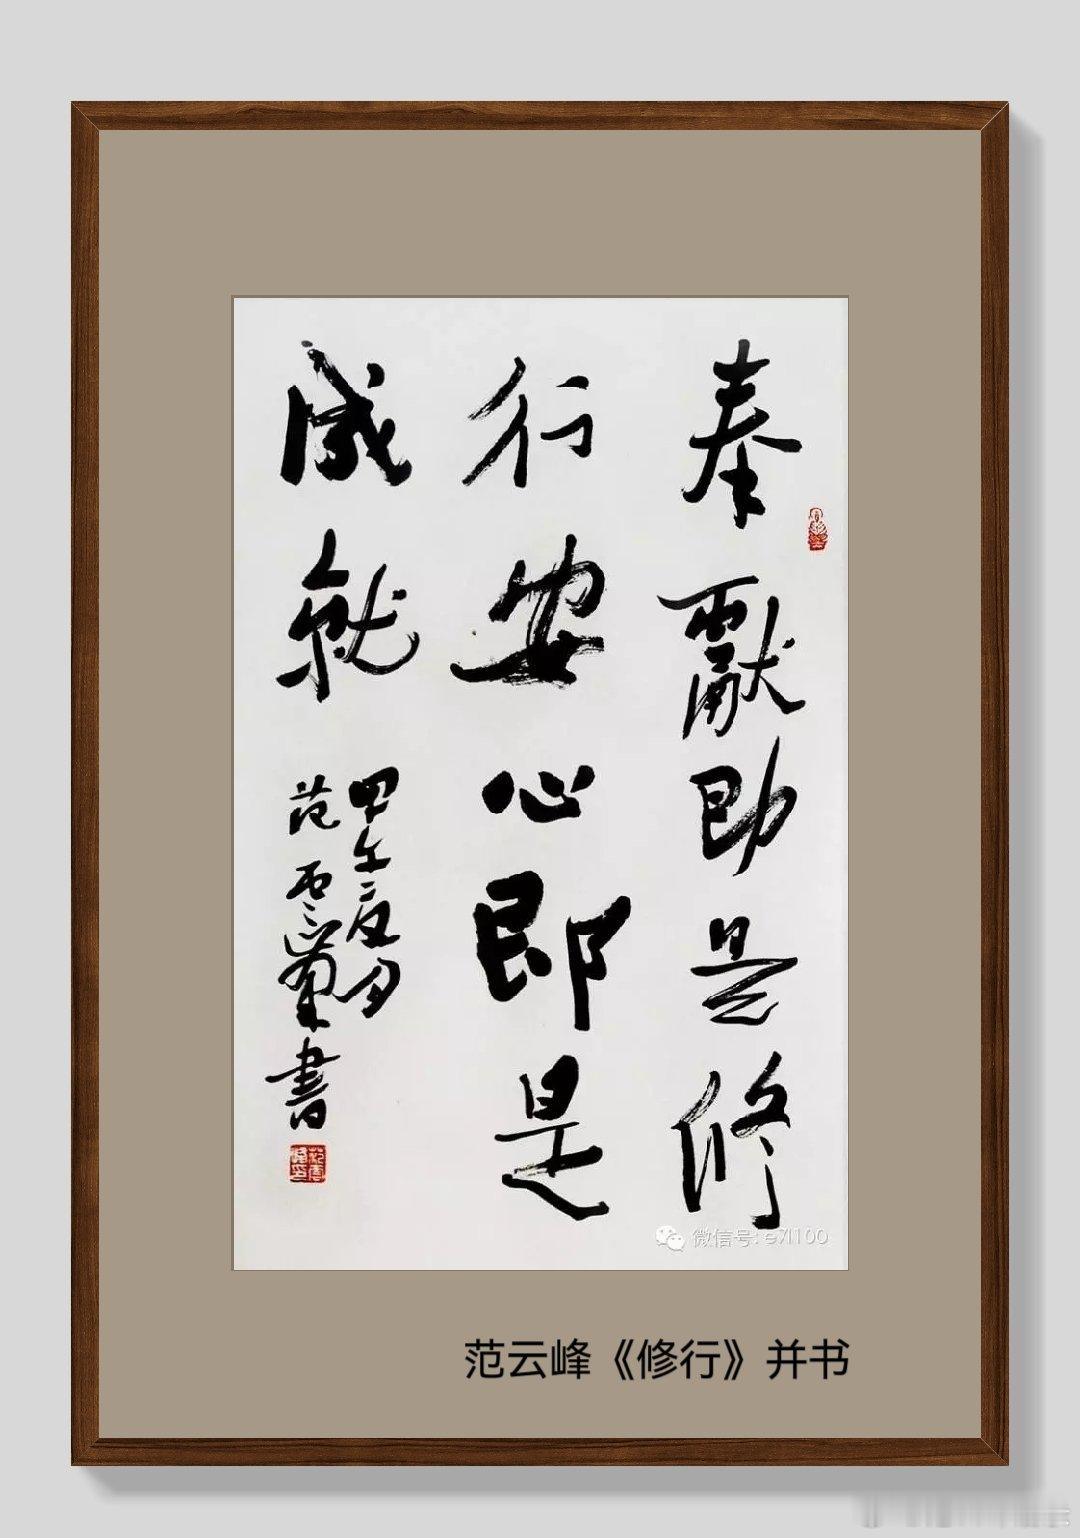 奉獻即是修
行安心即是
成就
甲午夏月
范雲峰書
微信号: e7l100
范云峰《修行》并书